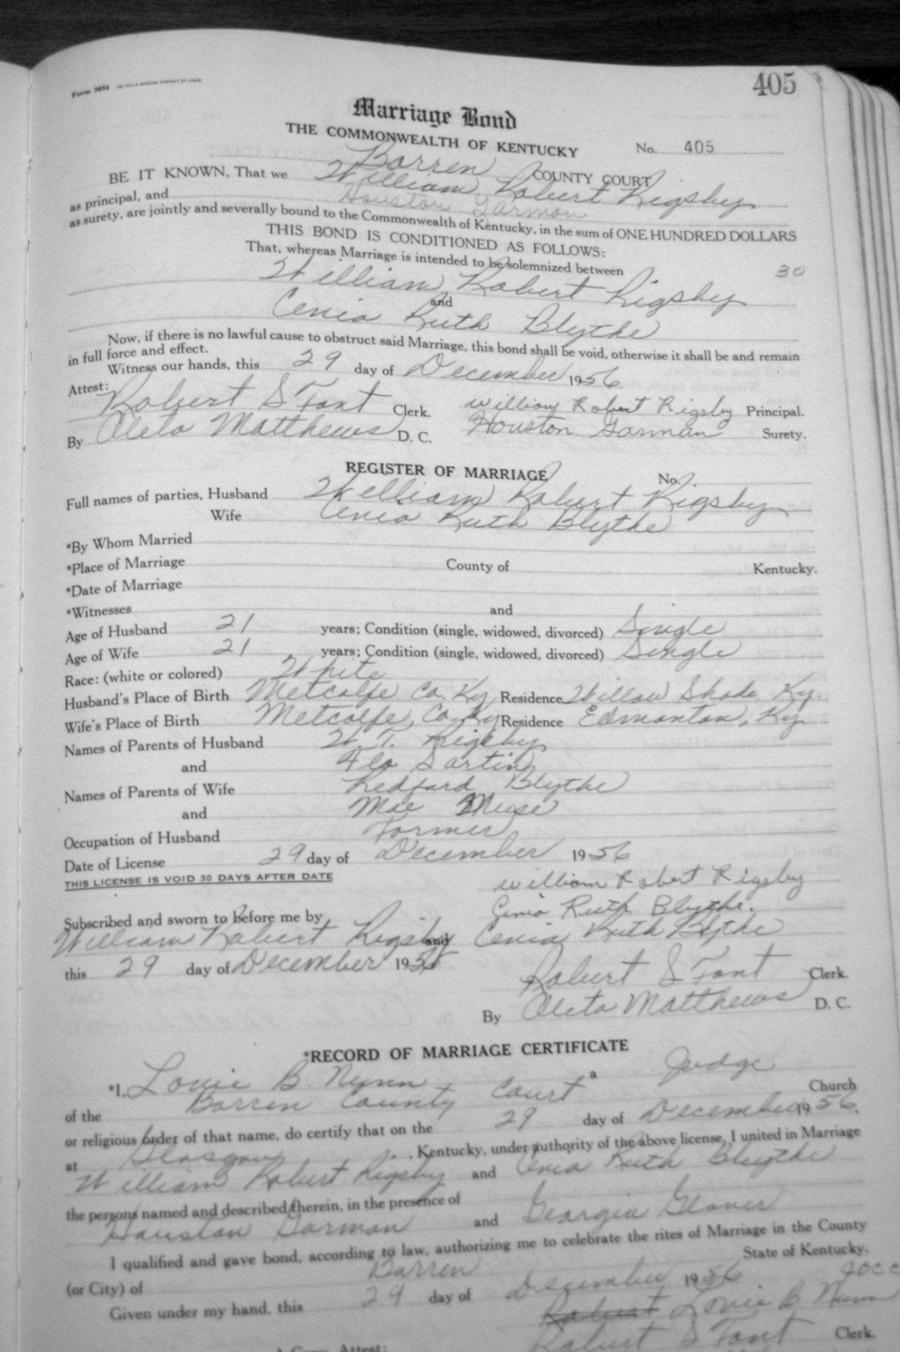 405
Form
Marriage Bond
THE COMMONWEALTH OF KENTUCKY
No. 405
Barren COUNTY COURT
BE IT KNOWN, That we William Robert Rigsby
as principal, and Houston Garmon
as surety, are jointly and severally bound to the Commonwealth of Kentucky, in the sum of ONE HUNDRED DOLLARS
THIS BOND IS CONDITIONED AS FOLLOWS:
That, whereas Marriage is intended to be solemnized between
30
William Robert Rigsby
and
Cenia Ruth Blythe
Now, if there is no lawful cause to obstruct said Marriage, this bond shall be void, otherwise it shall be and remain
in full force and effect.
Witness our hands, this 29 day of December 1956.
Attest:
Robert S Fant Clerk. William Robert Rigsby Principal.
By Oleta Matthews D. C. Houston Garman Surety.
REGISTER OF MARRIAGE
No.
Full names of parties, Husband William Robert Rigsby
Wife Cenia Ruth Blythe
*By Whom Married
*Place of Marriage County of Kentucky.
*Date of Marriage
*Witnesses and
Age of Husband 21 years; Condition (single, widowed, divorced) Single
Age of Wife 21 years; Condition (single, widowed, divorced) Single
Race: (white or colored) White
Husband's Place of Birth Metcalfe Co. Ky Residence Willow Shade, Ky.
Wife's Place of Birth Metcalfe, Co. Ky Residence Edmonton, Ky.
Names of Parents of Husband W. T. Rigsby
and Flo Sartin
Names of Parents of Wife Redford Blythe
and Mae Muse
Occupation of Husband Farmer
Date of License 29 day of December 1956
THIS LICENSE IS VOID 30 DAYS AFTER DATE
William Robert Rigsby
Cenia Ruth Blythe.
Subscribed and sworn to before me by
William Robert Rigsby and Cenia Ruth Blythe
this 29 day of December 1956
Robert S Fant Clerk.
By Oleta Matthews D. C.
*RECORD OF MARRIAGE CERTIFICATE
*I, Louie B. Nunn a Judge
of the Barren County Court Church
or religious order of that name, do certify that on the 29 day of December 1956.
at Glasgow, Kentucky, under authority of the above license, I united in Marriage
William Robert Rigsby and Cenia Ruth Blythe
the persons named and described therein, in the presence of
Houston Garman and Georgia Glover
I qualified and gave bond, according to law, authorizing me to celebrate the rites of Marriage in the County
(or City) of Barren State of Kentucky.
Given under my hand, this 29 day of December 1956
Robert Louie B Nunn JBCC
A Copy, Attest: Robert S Fant Clerk.